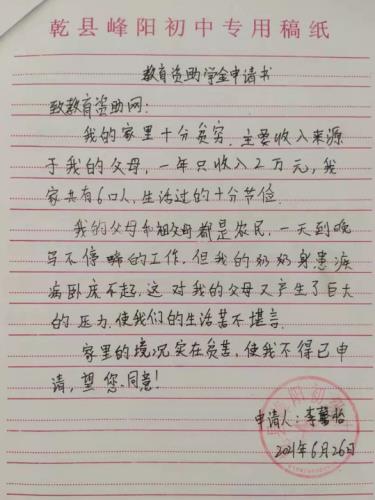 乾县峰阳初中专用稿纸
教育资助学金申请书
致教育资助网:
我的家里十分贫穷.主要收入来源
于我的父母,一年只收入2万元,我
家共有6口人,生活过的十分节俭.
我的父母和祖父母都是农民,一天到晚
马不停蹄的工作,但我的奶奶身患疾
病卧床不起.这对我的父母又产生了巨大
的压力.使我们的生活苦不堪言.
家里的境况实在贫苦,使我不得已申
请,望您同意!
申请人:李馨怡
2021年6月26日